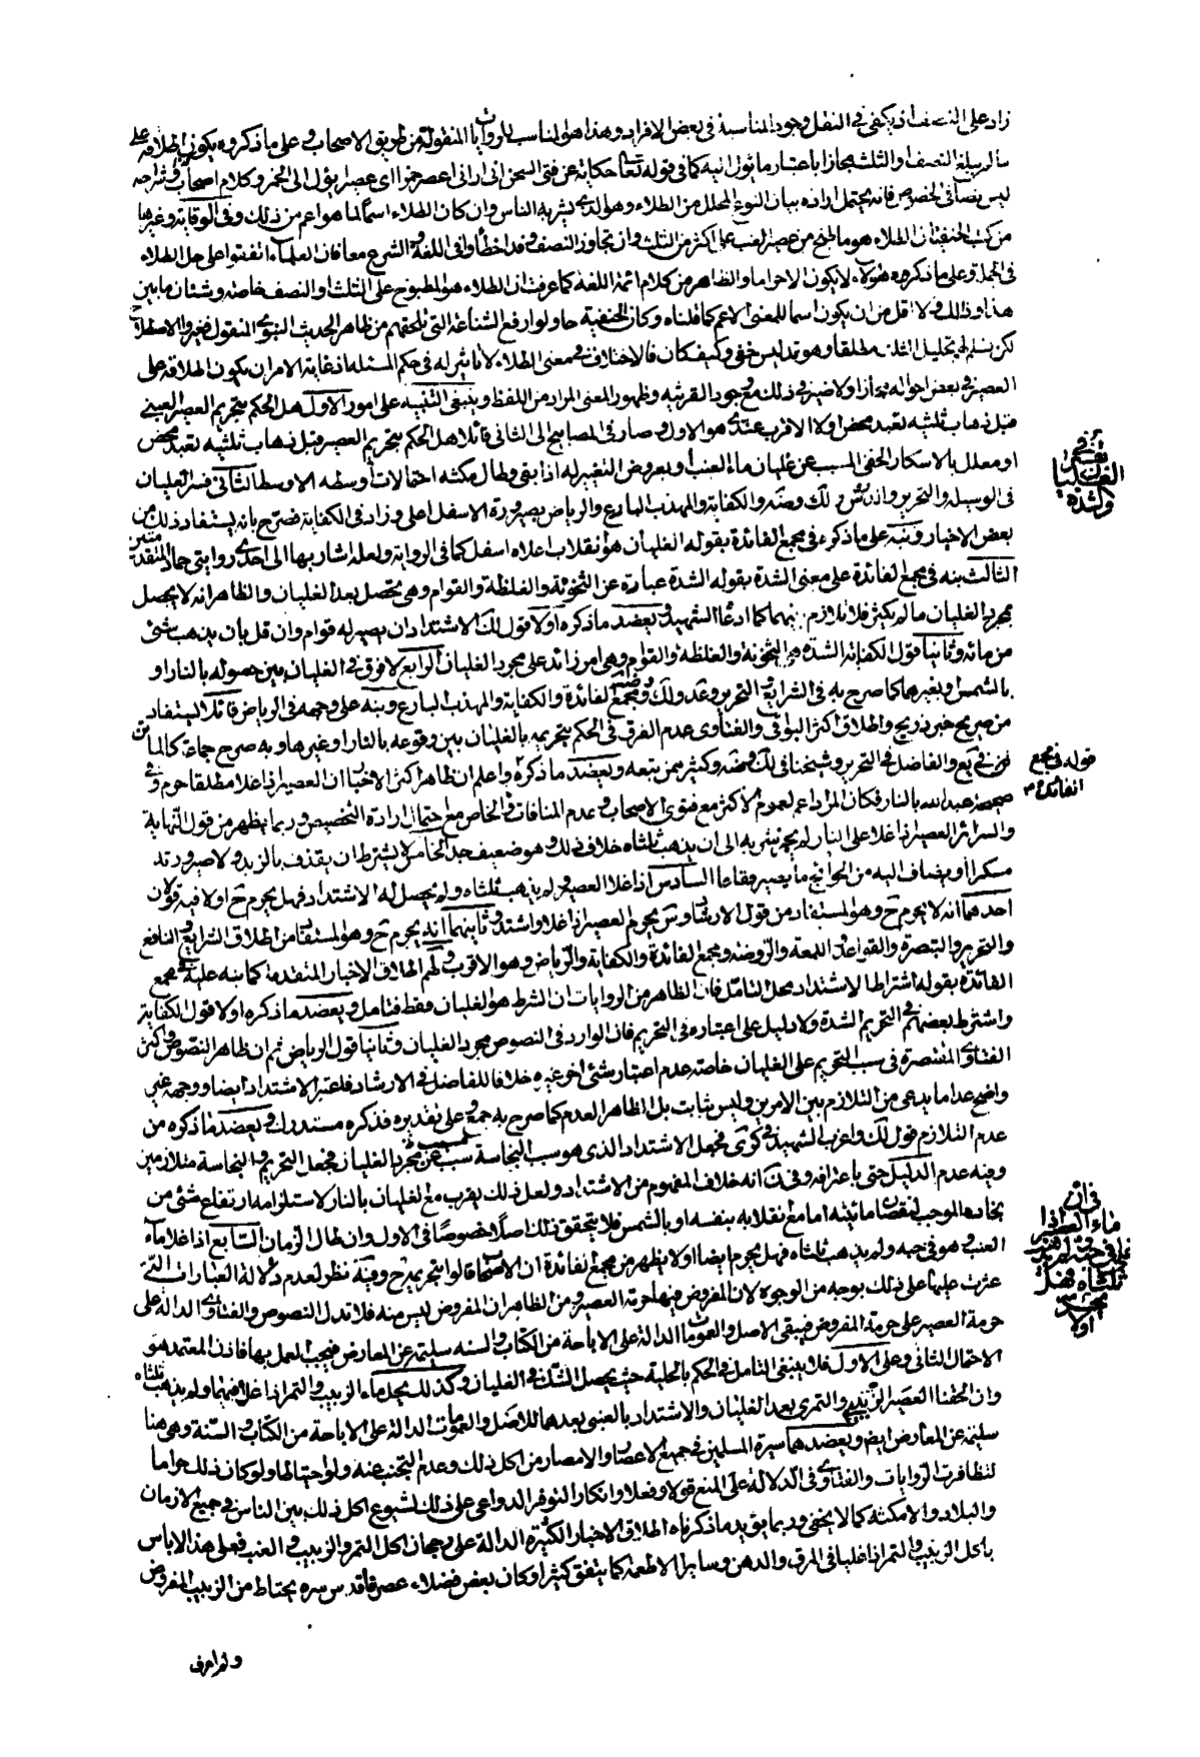 زاد على النصف اذ يكفى فى النقل وجود المناسبة فى بعض الافراد وهذا هو المناسب للروايات المنقولة من طريق الاصحاب وعلى ما ذكروه يكون اطلاقه على
ما لم يبلغ النصف والثلث مجازا باعتبار ما يؤل اليه كما فى قوله تعالى حكاية عن فتى السجن انى ارانى اعصر خمرا اى عصيرا يؤل الى الخمر وكلام اصحاب
ليس نصا فى الخصوص فانه يحتمل ارادة بيان النوع المحلل من الطلاء وهو الذى يشربه الناس وان كان الطلاء اسما لما هو اعم من ذلك وفى الوقاية وغيرها
من كتب الحنفية ان الطلاء هو ما طبخ من عصير العنب على اكثر من الثلث وان تجاوز النصف وقد اخطأوا فى اللغة والشرع معا فان العلماء اتفقوا على حل الطلاء
فى الجملة وعلى ما ذكره هؤلاء لا يكون الا حراما والظاهر من كلام ائمة اللغة كما عرفت ان الطلاء هو المطبوخ على الثلث او النصف خاصة وشتان ما بين
هذا وذاك ولا اقل من ان يكون اسما للمعنى الاعم كما قلناه وكان الحنفية حاولوا رفع الشناعة التى تلحقهم من ظاهر الحديث النبوى المنقول فغيروا الاصطلاح
لكن يسلم لهم تحليل الثلث مطلقا وهو تدليس خفى وكيف كان فالاختلاف فى معنى الطلاء لا تأثير له فى حكم المسئلة اذ غاية الامر ان يكون اطلاقه على
العصير فى بعض احواله مجازا ولا ضير فى ذلك مع وجود القرينة وظهور المعنى المراد من اللفظ وينبغى التنبيه على امور الاول هل الحكم بتحريم العصير العنبى
قبل ذهاب ثلثيه تعبد محض اولا الاقرب عندى هو الاول وصار فى المصابيح الى الثانى قائلا هل الحكم بتحريم العصير قبل ذهاب ثلثيه تعبد محض
او معلل بالاسكار الخفى المسبب عن غليان ماء العنب او بعروض التغير له اذا بقى وطال مكثه احتمالات اوسطها الاوسط الثانى فسر الغليان
فى الوسيلة والتحرير ولك وضه والكفاية والمهذب البارع والرياض بصيرورة الاسفل اعلى وزاد فى الكفاية فصرح بانه يستفاد ذلك من
بعض الاخبار ونبه على ما ذكر فى مجمع الفائدة بقوله الغليان هو انقلاب اعلاه اسفل كما فى الرواية ولعله اشار بها الى احدى روايتى حماد المتقدمتين
الثالث نبه فى مجمع الفائدة على معنى الشدة بقوله الشدة عبارة عن الثخونة والغلظة والقوام وهى تحصل بعد الغليان والظاهر انه لا يحصل
بمجرد الغليان ما لم يكثر فلا تلازم بينهما كما ادعاه الشهيد ويعضد ما ذكره اولا قول لك الاشتداد ان يصير له قوام وان قل بان يذهب شئ
من مائه وثانيا قول الكفاية الشدة هو الثخونة والغلظة والقوام وهى امر زائد على مجرد الغليان الرابع لا فرق فى الغليان بين حصوله بالنار او
بالشمس او بغيرهما كما صرح به فى الشرايع والتحرير وعد ولك وضه ومجمع الفائدة والكفاية والمهذب البارع ونبه على وجهه فى الرياض قائلا المستفاد
من صريح خبر ذريح واطلاق اكثر البواقى والفتاوى عدم الفرق فى الحكم بتحريمه بالغليان بين وقوعه بالنار او غيرها وبه صرح جماعة كالماتن
فى يع والفاضل فى التحرير وشيخنا فى لك وضه وكثير ممن تبعه ويعضد ما ذكره واعلم ان ظاهر اكثر الاخبار ان العصير اذا غلا مطلقا حرم وفى
صحيحة عبد الله بالنار فكان المراد اعم لعموم الاكثر مع فتوى الاصحاب وعدم المنافات فى الخاص مع احتمال ارادة التخصيص وربما يظهر من قول النهاية
والسرائر العصير اذا غلا على النار لم يجز شربه الى ان يذهب ثلثاه خلاف ذلك وهو ضعيف جدا الخامس لا يشترط ان يقذف بالزبد ولا صيرورته
مسكرا او يضاف اليه من الحوائج ما يصير فقاعا السادس اذا غلا العصير ولم يذهب ثلثاه ولم يحصل له الاشتداد فهل يحرم ح او لا فيه قولان
احدهما انه لا يحرم ح وهو المستفاد من قول الارشاد وس يحرم العصير اذا غلا واشتد وثانيهما انه يحرم ح وهو المستفاد من اطلاق الشرايع والنافع
والتحرير والتبصرة والقواعد واللمعة والروضة ومجمع الفائدة والكفاية والرياض وهو الاقرب ولهم اطلاق الاخبار المتقدمة كما نبه عليه فى مجمع
الفائدة بقوله اشتراط الاشتداد محل التامل فان الظاهر من الروايات ان الشرط هو الغليان فقط فتامل ويعضد ما ذكره اولا قول الكفاية
واشترط بعضهم فى التحريم الشدة ولا دليل على اعتباره فى التحريم فان الوارد فى النصوص مجرد الغليان وثانيا قول الرياض ثم ان ظاهر النصوص واكثر
الفتاوى المقتصرة فى سبب التحريم على الغليان خاصة عدم اعتبار شئ اخر غيره خلافا للفاضل فى الارشاد فاعتبر الاشتداد ايضا ووجهه غير
واضح عدا ما يدعى من التلازم بين الامرين وليس بثابت بل الظاهر العدم كما صرح به جمع وعلى تقديره فذكره مستدرك ويعضد ما ذكروه من
عدم التلازم قول لك واغرب الشهيد فى كرى فجعل الاشتداد الذى هو سبب النجاسة مسببا عن مجرد الغليان فجعل التحريم والنجاسة متلازمين
وفيه عدم الدليل حتى باعترافه وفى ن انه خلاف المفهوم من الاشتداد ولعل ذلك يقرب مع الغليان بالنار لاستلزامه ارتفاع شئ من
بخاره الموجب لنقصان مائيته اما مع انقلابه بنفسه او بالشمس فلا يتحقق ذلك اصلا خصوصا فى الاول وان طال الزمان السابع اذا غلا ماء
العنب وهو فى حبه ولم يذهب ثلثاه فهل يحرم ايضا اولا يظهر من مجمع الفائدة ان الاصحاب قالوا بتحريمه ح وفيه نظر لعدم دلالة العبارات التى
عثرت عليها على ذلك بوجه من الوجوه لان المفروض فيها حرمة العصير ومن الظاهر ان المفروض ليس منه فلا تدل النصوص والفتاوى الدالة على
حرمة العصير على حرمة المفروض فيبقى الاصل والعمومات الدالة على الاباحة من الكتاب والسنه سليمة عن المعارض فيجب العمل بها فاذن المعتمد هو
الاحتمال الثانى وعلى الاول فلا ينبغى التامل فى الحكم بالحلية حيث يحصل الشك فى الغليان وكذلك يحل ماء الزبيب والتمر اذا غلا فيهما ولم يذهب ثلثاه
وان الحقنا العصير الزبيبى والتمرى بعد الغليان والاشتداد بالعنبى بعدهما للاصل والعمومات الدالة على الاباحة من الكتاب والسنة وهى هنا
سليمة عن المعارض ايضا ويعضدهما سيرة المسلمين فى جميع الاعصار والامصار من اكل ذلك وعدم التجنب عنه ولو احتياطا ولو كان ذلك حراما
لتظافرت الروايات والفتاوى فى الدلالة على المنع قولا وفعلا وانكارا لتوفر الدواعى على ذلك لشيوع اكل ذلك بين الناس فى جميع الازمان
والبلاد والامكنة كما لا يخفى وربما يؤيد ما ذكرناه اطلاق الاخبار الكثيرة الدالة على رجحان اكل التمر والزبيب والعنب فعلى هذا لا باس
باكل الزبيب والتمر اذا غليا فى المرق والدهن وسائر الاطعمة كما يتفق كثيرا وكان بعض فضلاء عصرنا قدس سره يحتاط من الزبيب المفروض
ولم اعرف
فى تفسير الغليان والشدة
قوله فى مجمع الفائدة
فى ان ماء العنب اذا غلى فى حبه ولم يذهب ثلثاه فهل يحرم او لا